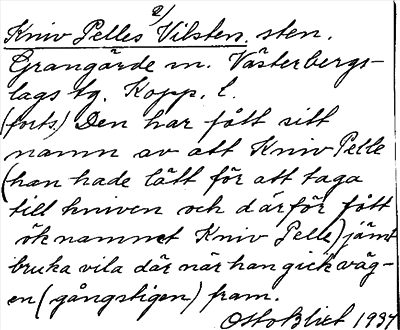 2/
Kniv Pelles Vilsten, sten.
Grangärde sn. Västerbergs-
lags tg. Kopp. l.
(forts.) Den har fått sitt
namn av att Kniv Pelle
(han hade lätt för att taga
till kniven och därför fått
öknamnet Kniv Pelle) jämt
bruka vila där när han gick väg-
en (gångstigen) fram.
Otto Blixt 1937